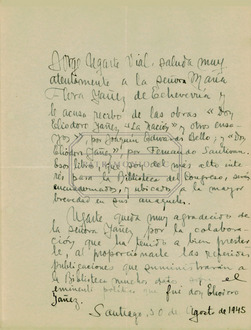 Jorge Ugarte Vial, saluda muy
atentamente a la señora María
Flora Yáñez de Echeverría y
le acusa recibo de las obras "Don
Eliodoro Yáñez "La Nación" y otros ensa-
yos", por Joaquín Edwards Bello; y "Don
Eliodoro Yáñez" por Fernando Santiván.
Esos libros, que son del más alto inte-
rés para la Biblioteca del Congreso, serán
encuadernados, y ubicados a la mayor
brevedad en sus anaqueles.
Ugarte queda muy agradecido de
la señora Yáñez por la colabora-
ción que ha tenido a bien prestar-
le, al proporcionarle las referidas
publicaciones que suministrarán a
la Biblioteca muchos datos el
eminente político que fué don Eliodoro
Yáñez.
Santiago, 30 de Agosto de 1945